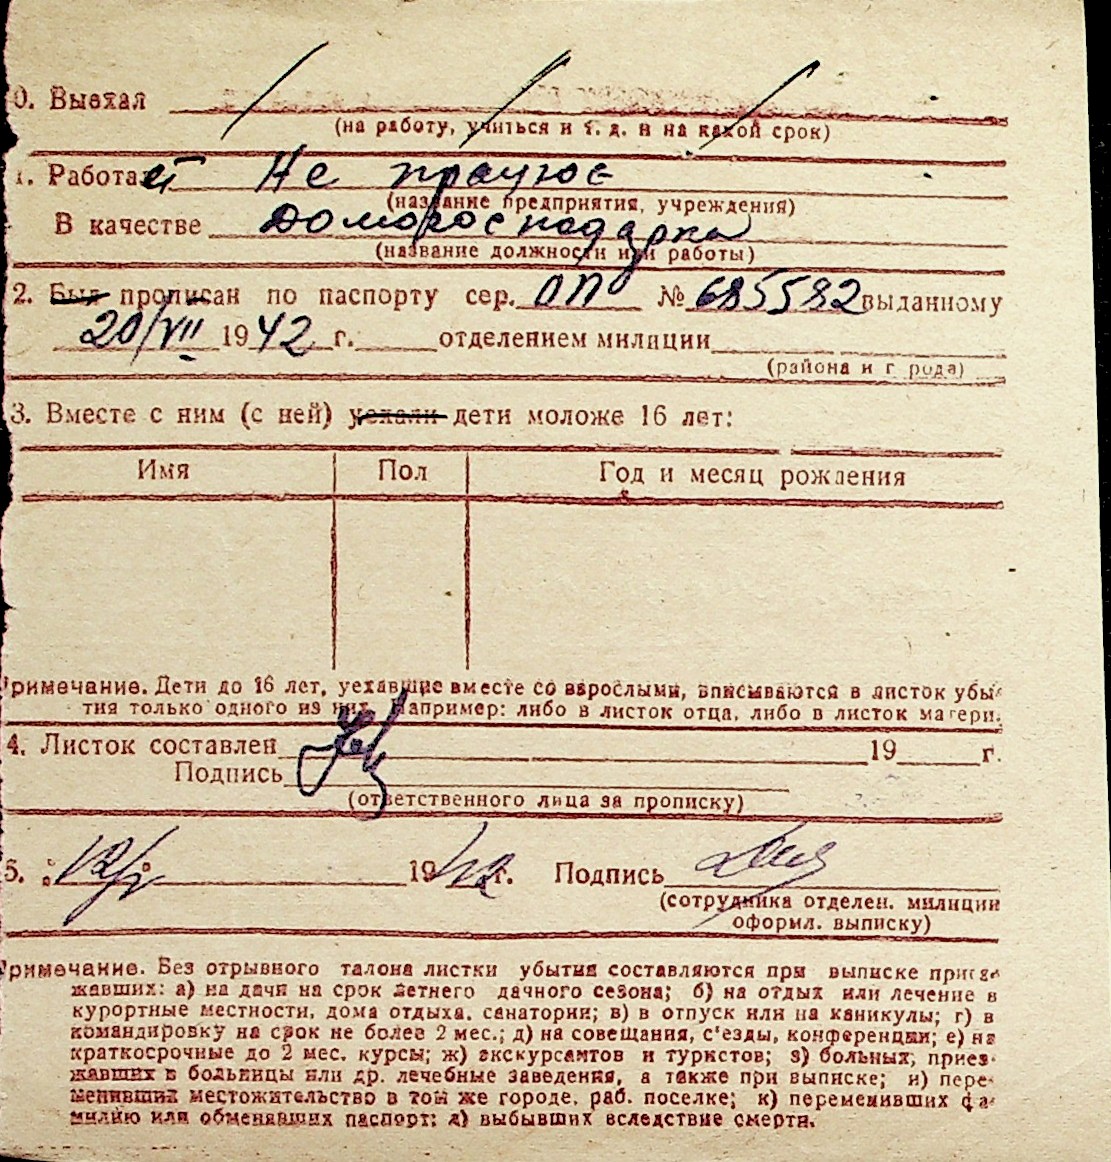 0. Выехал
(на работу, учиться и т. д. и на какой срок)
1. Работает Не працює
(название предприятия, учреждения)
В качестве Домогосподарка
(название должности или работы)
2. Был прописан по паспорту сер. ОП № 685582 выданному
20/VII 1942 г. отделением милиции
(района и г рода)
3. Вместе с ним (с ней) уехали дети моложе 16 лет:
Имя Пол Год и месяц рождения
Примечание. Дети до 16 лет, уехавшие вместе со взрослыми, вписываются в листок убы-
тия только одного из них. Например: либо в листок отца, либо в листок матери.
4. Листок составлен 19 г.
Подпись
(ответственного лица за прописку)
5. 1942 г. Подпись
(сотрудника отделен. милиции
оформл. выписку)
Примечание. Без отрывного талона листки убытия составляются при выписке приез-
жавших: а) на дачи на срок летнего дачного сезона; б) на отдых или лечение в
курортные местности, дома отдыха, санатории; в) в отпуск или на каникулы; г) в
командировку на срок не более 2 мес.; д) на совещания, с'езды, конференции; е) на
краткосрочные до 2 мес. курсы; ж) экскурсантов и туристов; з) больных, приез-
жавших в больницы или др. лечебные заведения, а также при выписке; и) пере-
менивших местожительство в том же городе, раб. поселке; к) переменивших фа-
милию или обменявших паспорт; л) выбывших вследствие смерти.